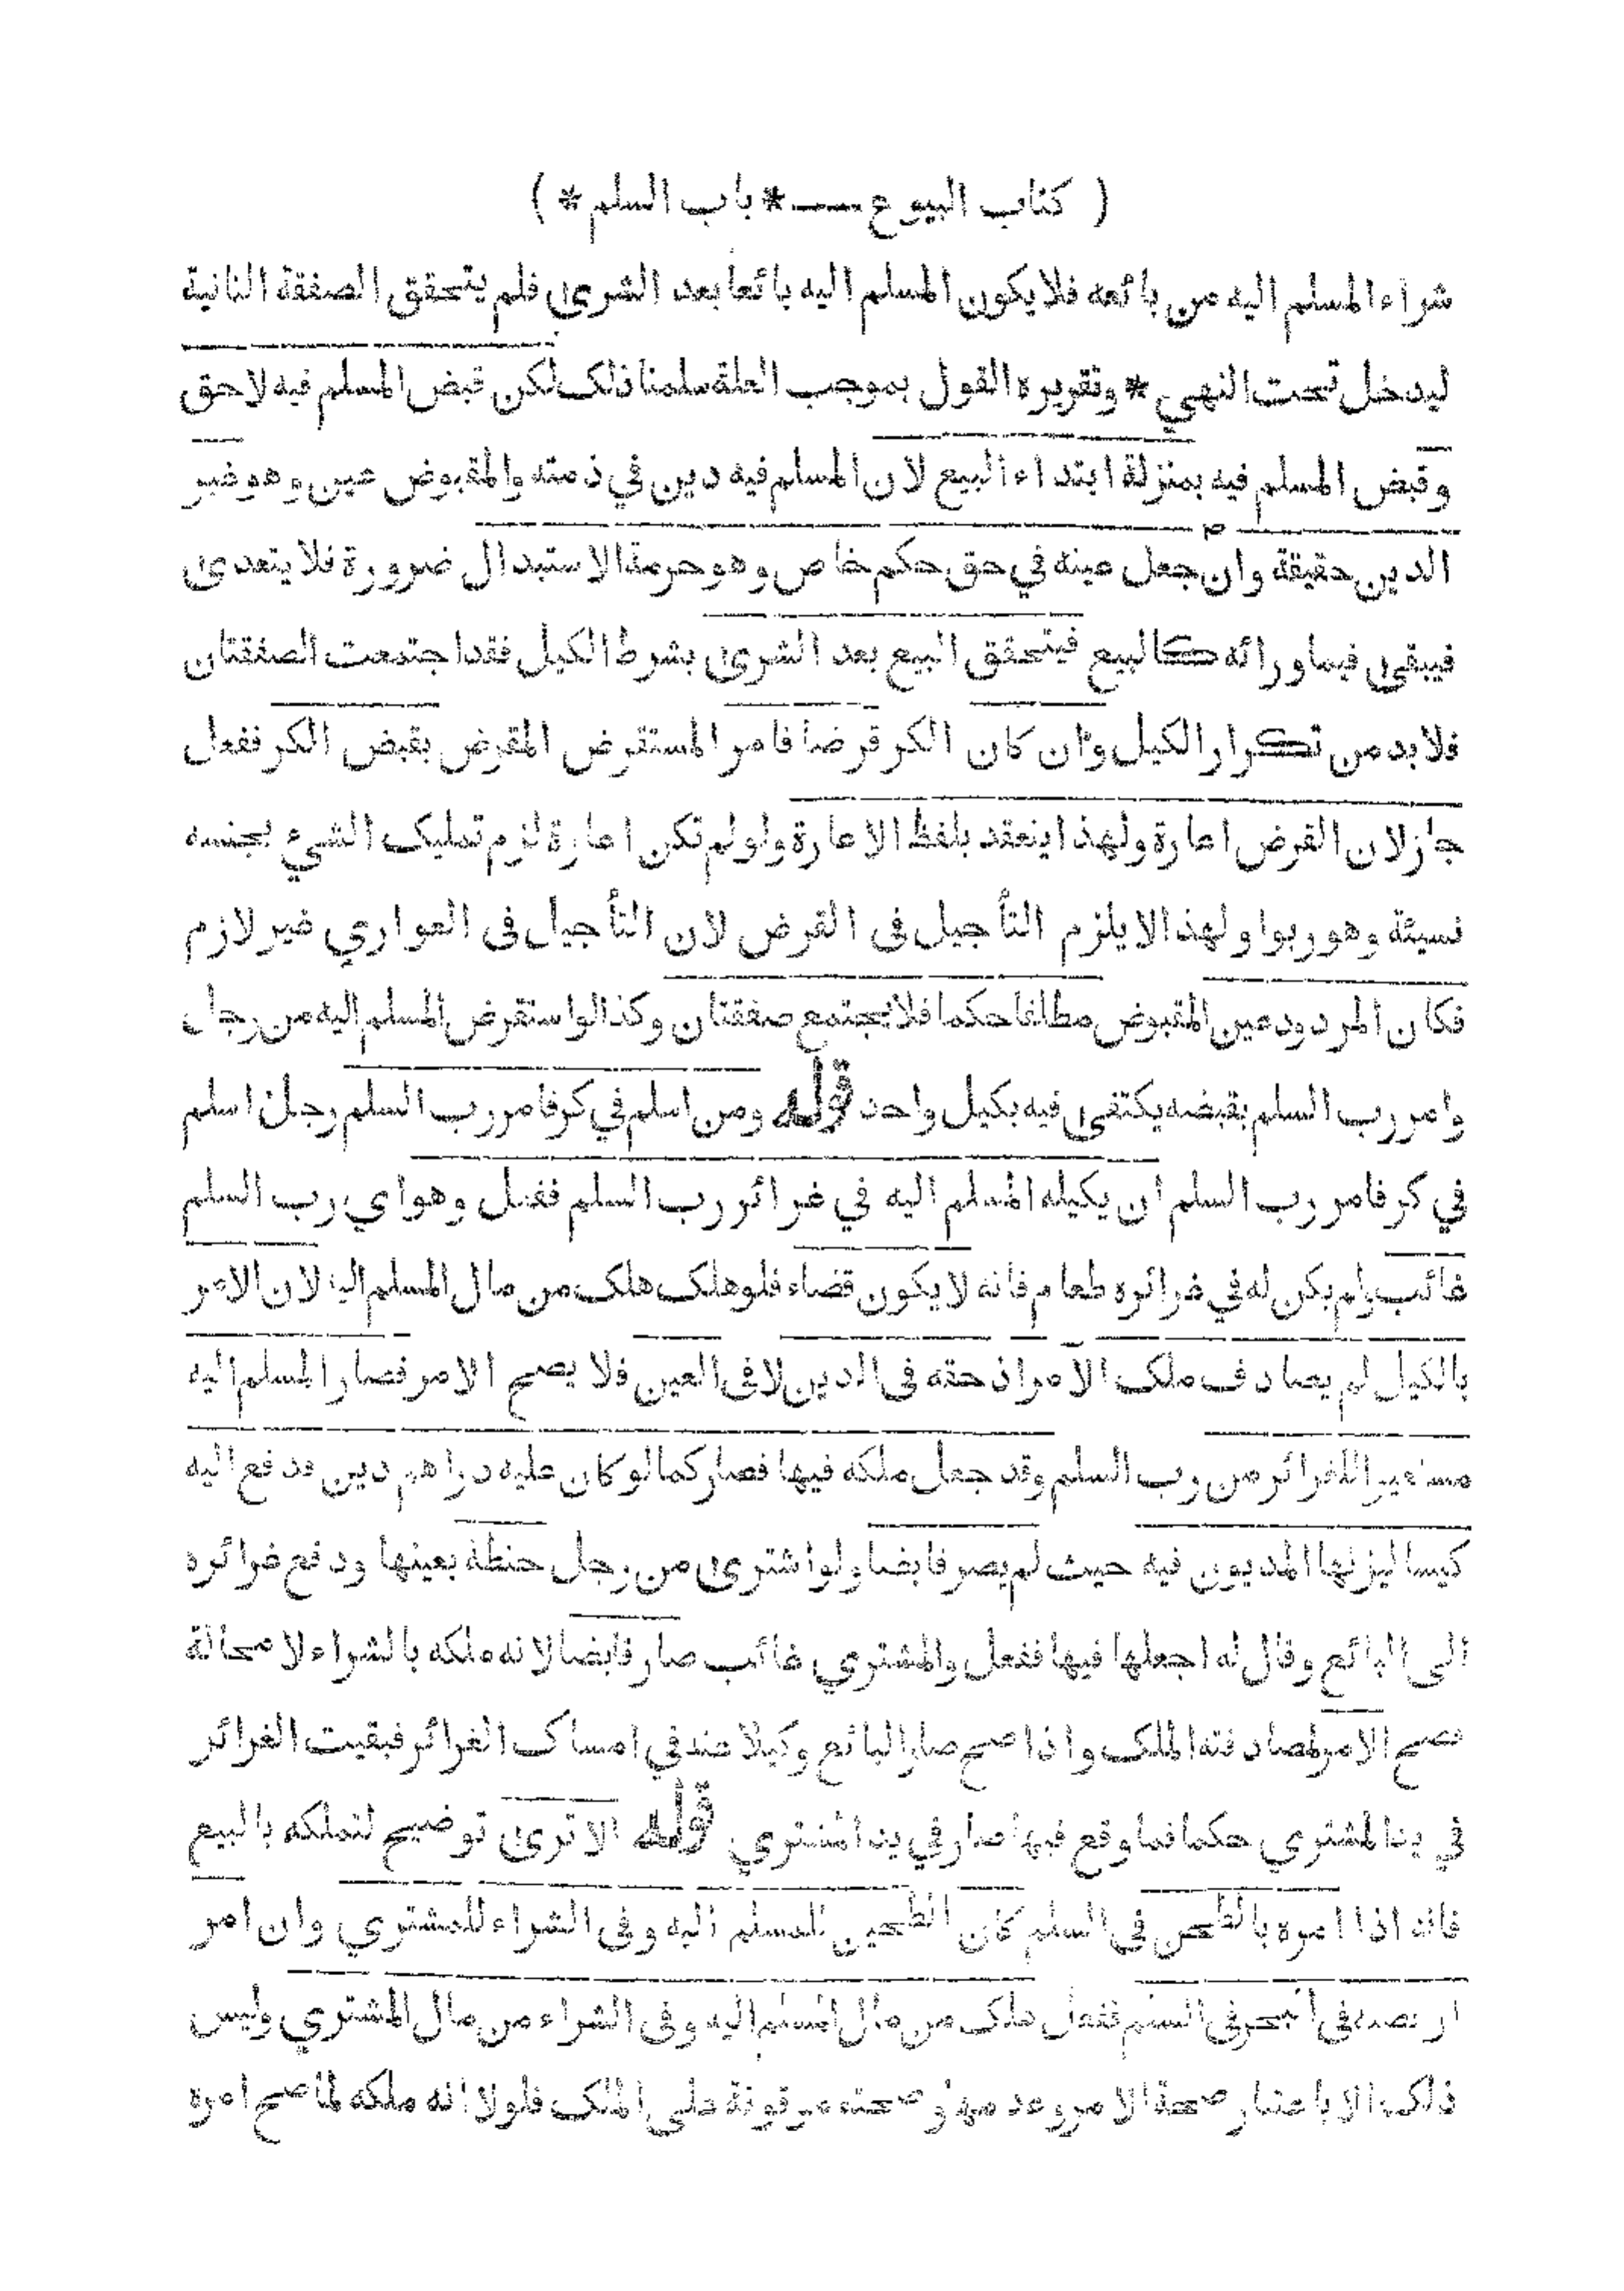 ( كتاب البيوع ــــ * باب السلم * )
شراء المسلم اليه من بائعه فلا يكون المسلم اليه بائعا بعد الشرى فلم يتحقق الصفقة الثانية
ليدخل تحت النهي * وتقريره القول بموجب العلة سلمنا ذلك لكن قبض المسلم فيه لاحق
وقبض المسلم فيه بمنزلة ابتداء البيع لان المسلم فيه دين في ذمته والمقبوض عين وهو غير
الدين حقيقة وان جعل عينه في حق حكم خاص وهو حرمة الاستبدال ضرورة فلا يتعدى
فيبقى فيما ورائه كالبيع فيتحقق البيع بعد الشرى بشرط الكيل فقد اجتمعت الصفقتان
فلا بد من تكرار الكيل وان كان الكر قرضا فامر المستقرض المقرض بقبض الكر ففعل
جاز لان القرض اعارة ولهذا ينعقد بلفظ الاعارة ولو لم تكن اعارة لزم تمليك الشيء بجنسه
نسيئة وهو ربوا ولهذا لا يلزم التأجيل فى القرض لان التأجيل فى العواري غير لازم
فكان المردود عين المقبوض مطلقا حكما فلا يجتمع صفقتان وكذا لو استقرض المسلم اليه من رجل
وامر رب السلم بقبضه يكتفى فيه بكيل واحد قوله ومن اسلم في كر فامر رب السلم رجل اسلم
في كر فامر رب السلم ان يكيله المسلم اليه في غرائر رب السلم ففعل وهو اي رب السلم
غائب ولم يكن له في غرائره طعام فانه لا يكون قضاء فلو هلك هلك من مال المسلم اليه لان الامر
بالكيل لم يصادف ملك الآمر اذ حقه فى الدين لا فى العين فلا يصح الامر فصار المسلم اليه
مستعيرا للغرائر من رب السلم وقد جعل ملكه فيها فصار كما لو كان عليه دراهم دين فدفع اليه
كيسا ليزنها المديون فيه حيث لم يصر قابضا ولو اشترى من رجل حنطة بعينها ودفع غرائره
الى البائع وقال له اجعلها فيها ففعل والمشتري غائب صار قابضا لانه ملكه بالشراء لا محالة
فصح الامر لمصادفته الملك واذا صح صار البائع وكيلا عنه في امساك الغرائر فبقيت الغرائر
في يد المشتري حكما فما وقع فيها صار في يد المشتري قوله الا ترى توضيح لتملكه بالبيع
فانه اذا امره بالطحن فى السلم كان الطحين للمسلم اليه وفى الشراء للمشتري وان امر
ان يصبه فى البحر فى السلم ففعل هلك من مال المسلم اليه وفى الشراء من مال المشتري وليس
ذلك الا باعتبار صحة الامر وعدمها وصحته موقوفة على الملك فلولا انه ملكه لما صح امره